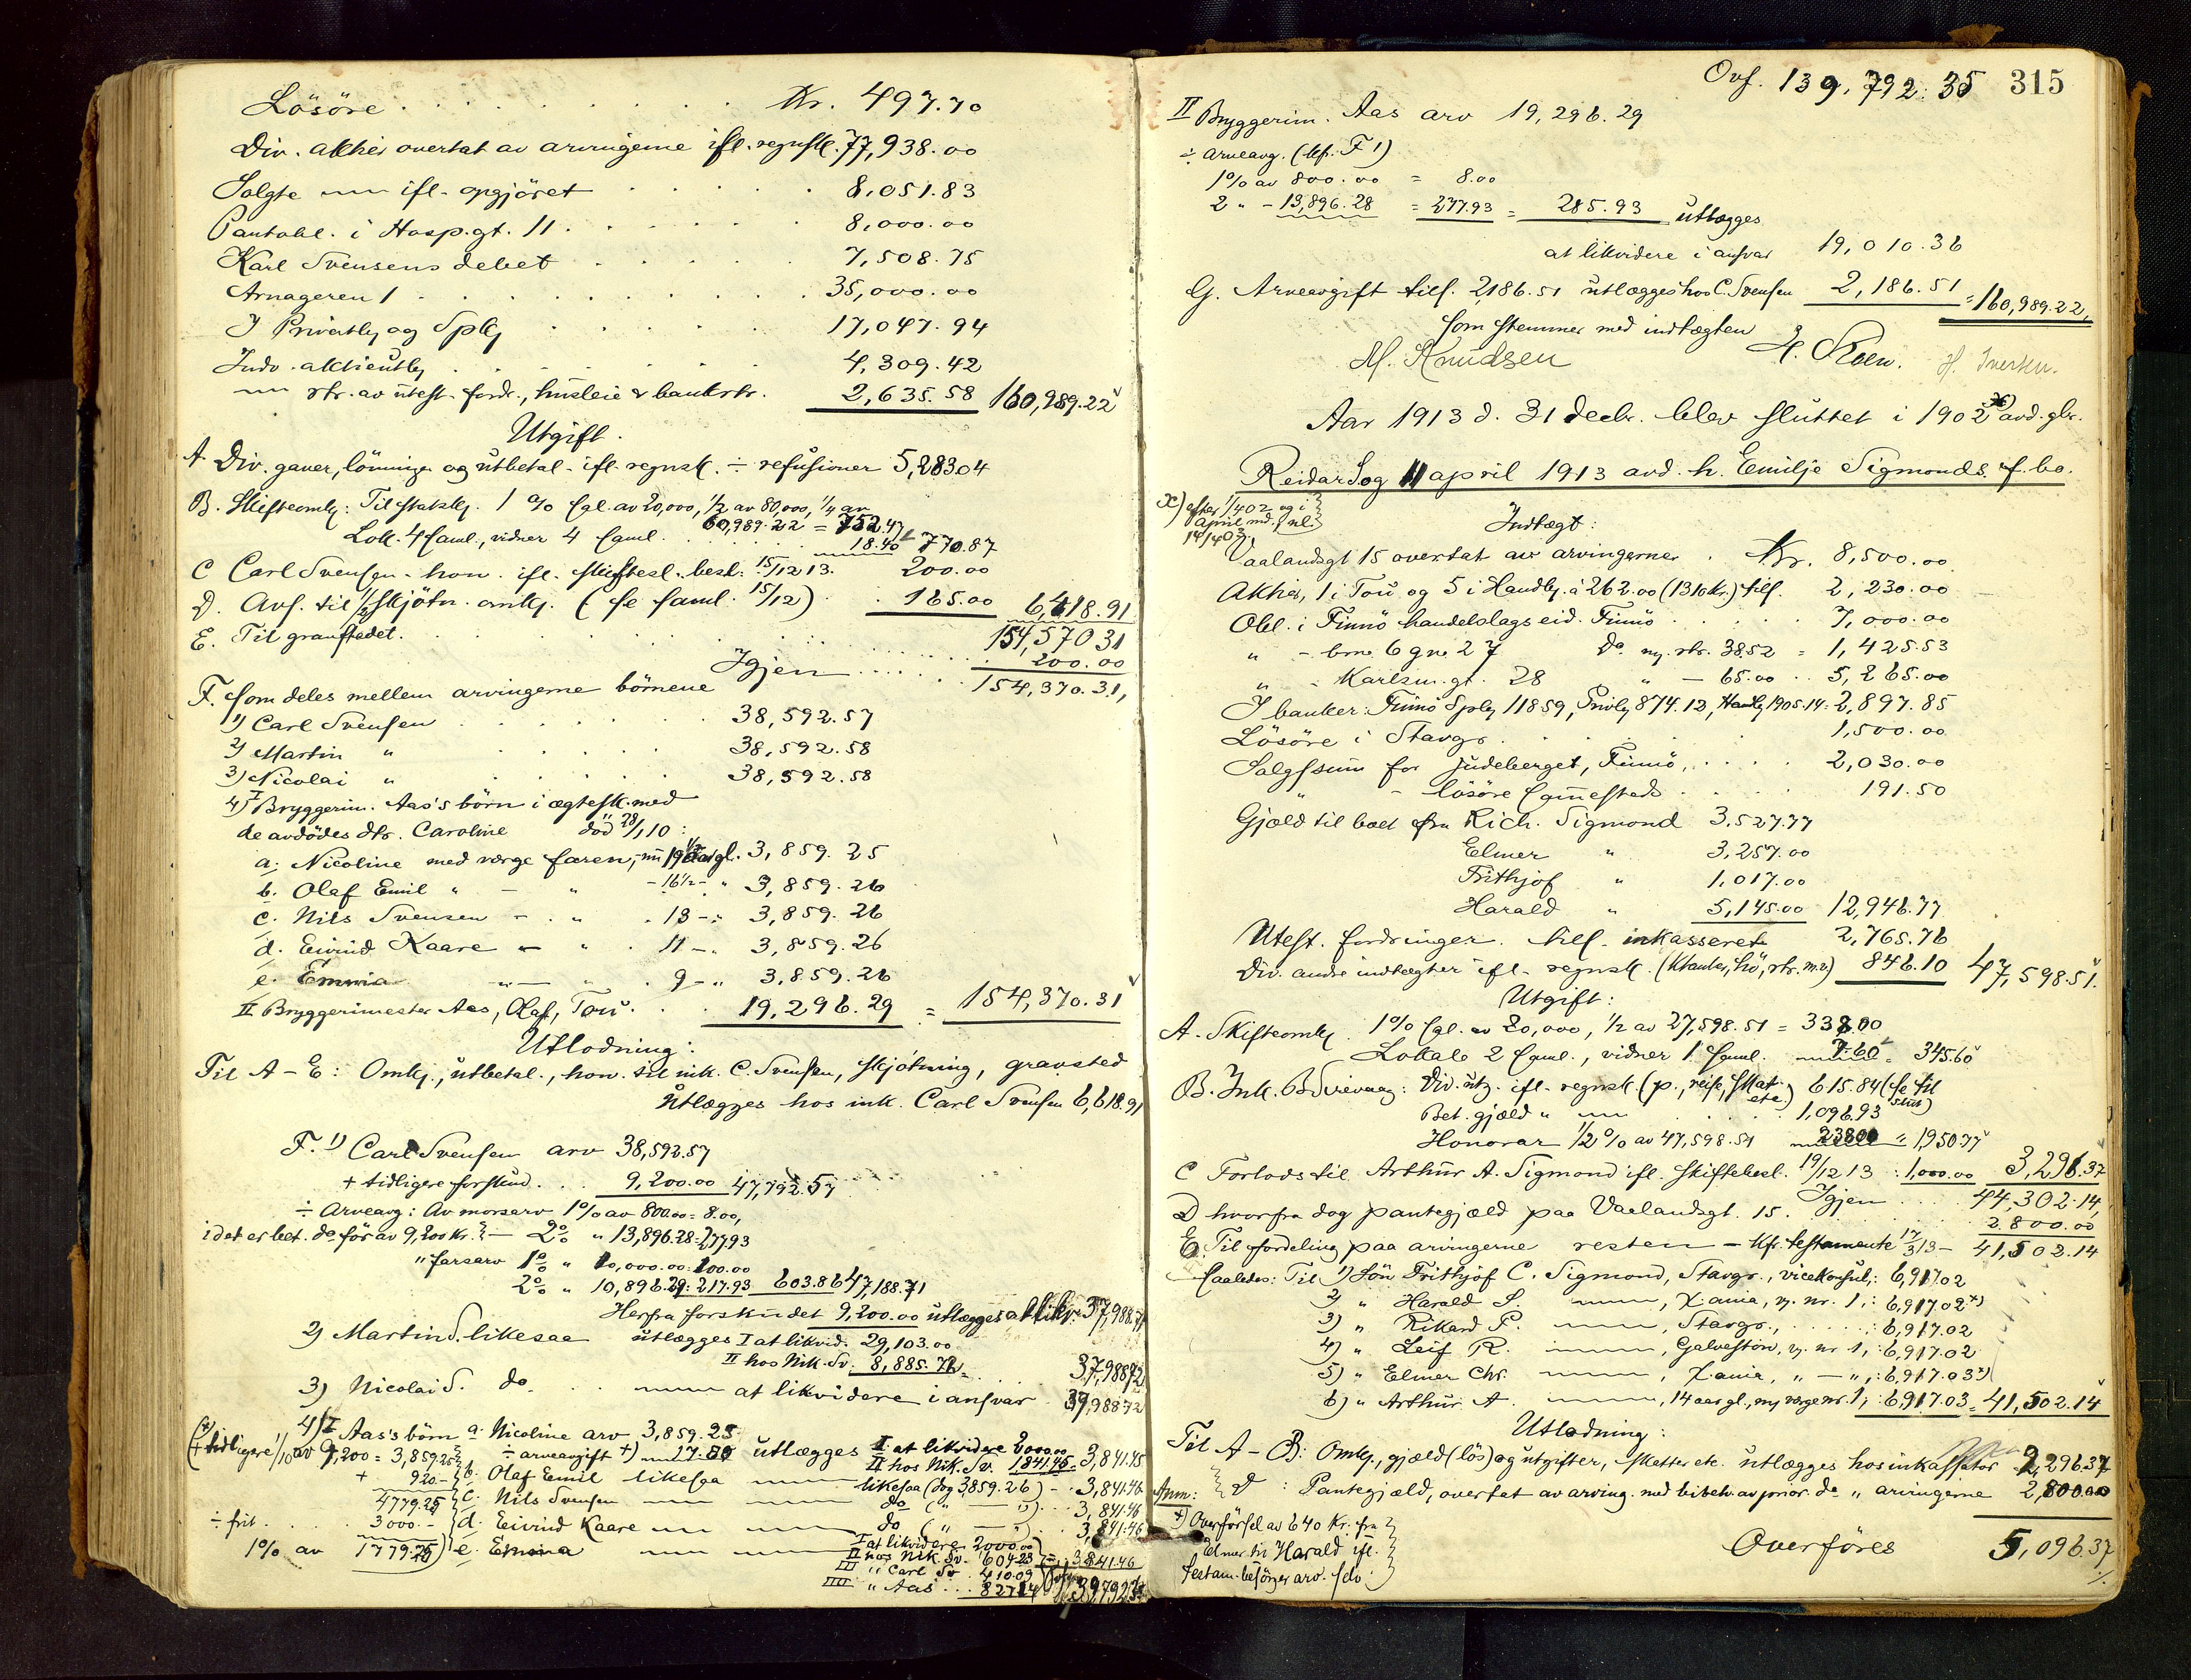 Lösöre . . . . . . . . . . Kr. 497.70
Div. aktier overtat av arvingerne ifl. regnsk. 77,938.00
Solgte — ifl. opgjöret . . . . . 8,051.83
Pantobl. i Hosp.gt. 11 . . . . . 8,000.00
Karl Svensens debet . . . . . 7,508.75
Arnageren 1 . . . . . . . . 35,000.00
I Privatbk og Spbk . . . . . 17,047.94
Indv. aktieutby . . . . . 4,309.42
— rtr. av utest. fordr., husleie & bankrtr. 2,635.58 160,989.22
Utgift.
A Div. gaver, lönninger og utbetal. ifl. regnsk. ÷ refusioner 5,283.04
B. Skifteomk: Til statsk. 1 % sgl. av 20,000, 1/2 av 80,000, 1/4 av
60,989.22 = 752.47
Lok. 4 saml., vidner 4 saml. . . . 18.40 770.87
C Carl Svensen hon. ifl. skiftesl. besl. 15/12 13. 200.00
D. Avs. til skjötn. omk. (se saml. 15/12) . . 165.00 6,418.91
154,570.31
E. Til gravstedet . . . . . . . 200.00
Igjen . . . . . 154,370.31
F. som deles mellem arvingerne börnene
1) Carl Svensen . . . . . 38,592.57
2) Martin " . . . . . 38,592.58
3) Nicolai " . . . . . 38,592.58
4) I Bryggerim. Aas's börn i ægtesk. med
de avdödes dtr. Caroline död 28/1 10:
a. Nicoline med værge faren, 19 aar gl. 3,859.25
b. Olaf Emil " — " - 16 1/2 - " 3,859.26
c. Nils Svensen - . " . 13 - " 3,859.26
d. Eivind Kaare - " . 11 - . 3,859.26
e. Emma " — " . 9 - " 3,859.26
II Bryggerimester Aas, Olaf, Tou . . . 19,296.29 = 154,370.31
Utlodning:
Til A - E: Omk., utbetal., hon. til ink. C. Svensen, skjötning, gravsted
utlægges hos ink. Carl Svensen 6,618.91
F. 1) Carl Svensen arv 38,592.57
+ tidligere forskud . . . 9,200.00 47,792.57
÷ Arveavg: Av morsarv 1% av 800.00 = 8.00,
idet er bet. do för av 9,200 Kr. — 2% " 13,896.28: 277.93
" farsarv 1% " 10,000.00: 100.00
2% " 10,896.29: 217.93 603.86 47,188.71
Herfra forskudet 9,200.00 utlægges at likv: 37,988.71
2) Martin S. likesaa utlægges I at likvid. 29,103.00
II hos Nik. Sv. 8,885.72 . . . 37,988.72
3) Nicolai S. do . . — at likvidere i ansvar 37,988.72
4) I Aas's börn a. Nicoline arv 3,859.25
÷ arveavgift +) 17.80 utlægges I at likvidere 2000.00
II hos Nik. Sv. 1841.45 = 3,841.45
b. Olaf Emil likesaa — likesaa (dog 3859.26) - . 3,841.46
c. Nils Svensen — — do ( " — " ) . . 3,841.46
d. Eivind Kaare — — do ( " — " ) . . 3,841.46
e. Emma — — I at likvidere 2000.00
II hos Nik. Sv. 604.23 = 3,841.46
III " Carl Sv. 410.09
IIII " Aas . . . 827.14
+) tidligere 1/10 av 9,200 = 3,859.25
+ 920.-
4779.25
÷ frit . . . 3000.-
1% av 1779.25
Ovf. 139,792.35 315
II Bryggerim. Aas arv 19,296.29
÷ arveavg. (kfr. F 1)
1% av 800.00 = 8.00
2 " - 13,896.28 = 277.93 = 285.93 utlægges
at likvidere i ansvar 19,010.36
G. Arveavgift tils. 2186.51 utlægges hos C. Svensen 2,186.51 = 160,989.22,
som stemmer med indtægten
M. Knudsen
H. Iversen.
Aar 1913 d. 31 decbr. blev sluttet i 1902 x) avd. gbr.
Reidar S og 11 april 1913 avd. h. Emilje Sigmonds f. bo.
x) efter 1/4 02 og i
april md.
14/4 03
Indtægt:
Vaalandsgt 15 overtat av arvingerne . Kr. 8,500.00
Aktier, 1 i Tou og 5 i Handbk. à 262.00 (1310 Kr.) tils. 2,230.00
Obl. i Finnö handelslags eid. Finnö . . . . 7,000.00
" - brn. 6 gn. 27 do ny. rtr. 38.52 = 1,425.53
" - Karlsm.gt. 28 " - 65.00 . . 5,265.00
I banker: Finnö Spbk 118.59, Privbk 874.12, Handbk 1905.14: 2,897.85
Lösöre i Stavgr. . . . . . 1,500.00
Salgssum for Judeberget, Finnö, . . . . 2,030.00
" - lösöre samesteds . . . . 191.50
Gjæld til boet fra Rich. Sigmond 3,527.77
Elmer " 3,257.00
Frithjof " 1,017.00
Harald " 5,145.00 12,946.77
Utest. fordringer. tils. inkasseret 2,765.76
Div. andre indtægter ifl. regnsk. (Kontanter, hö, rtr. m.v.) 846.10 47,598.51.
Utgift:
A. Skifteomk. 1% sgl. av 20,000, 1/2 av 27,598.51 = 338.00
Lokale 2 saml., vidner 1 saml. 7.60 = 345.60
B. Ink. B. Scievaag: Div. utg. ifl. regnsk. (p., reise, skat etc.) 615.84 (se til slut)
Bet. gjæld " — . . . . 1,096.93
Honorar 1/2 % av 47,598.51 238.00 = 1950.77
C Forlods til Arthur A. Sigmond ifl. skiftebesl. 19/12 13 : 1,000.00 3,296.37
Igjen . . . 44,302.14,
D hvorfra dog pantegjæld paa Vaalandsgt. 15. . . . 2.800.00
E Til fordeling paa arvingerne resten - kfr. testamente 17/3 13 - 41,502.14
saaledes: Til 1) Sön Frithjof C. Sigmond, Stavgr., vicekonsul,: 6,917.02
2) " Harald S. —, X.ania, v. nr. 1,: 6,917.02 +)
3) " Rikard F. —, Stavgr., . . . .: 6,917.02
4) " Leif R. —, Galveston, v. nr 1,: 6,917.02
5) " Elmer Chr. —, X.ania, " — " ,: 6,917.03 +)
6) " Arthur A. —, 14 aar gl., m. værge nr. 1,: 6,917.03 = 41,502.14
Utlodning:
Til A - B: Omk., gjæld (lös) og utgifter, skatter etc. utlægges hos inkassator 2,296.37
D : Pantegjæld, overtat av arving. med bibeh. av prior. do " arvingerne 2,800.00
Anm:
+) Overförsel av 640 Kr. fra
Elmer til Harald ifl.
testam. besörger arv. sdo
Overföres 5,096.37